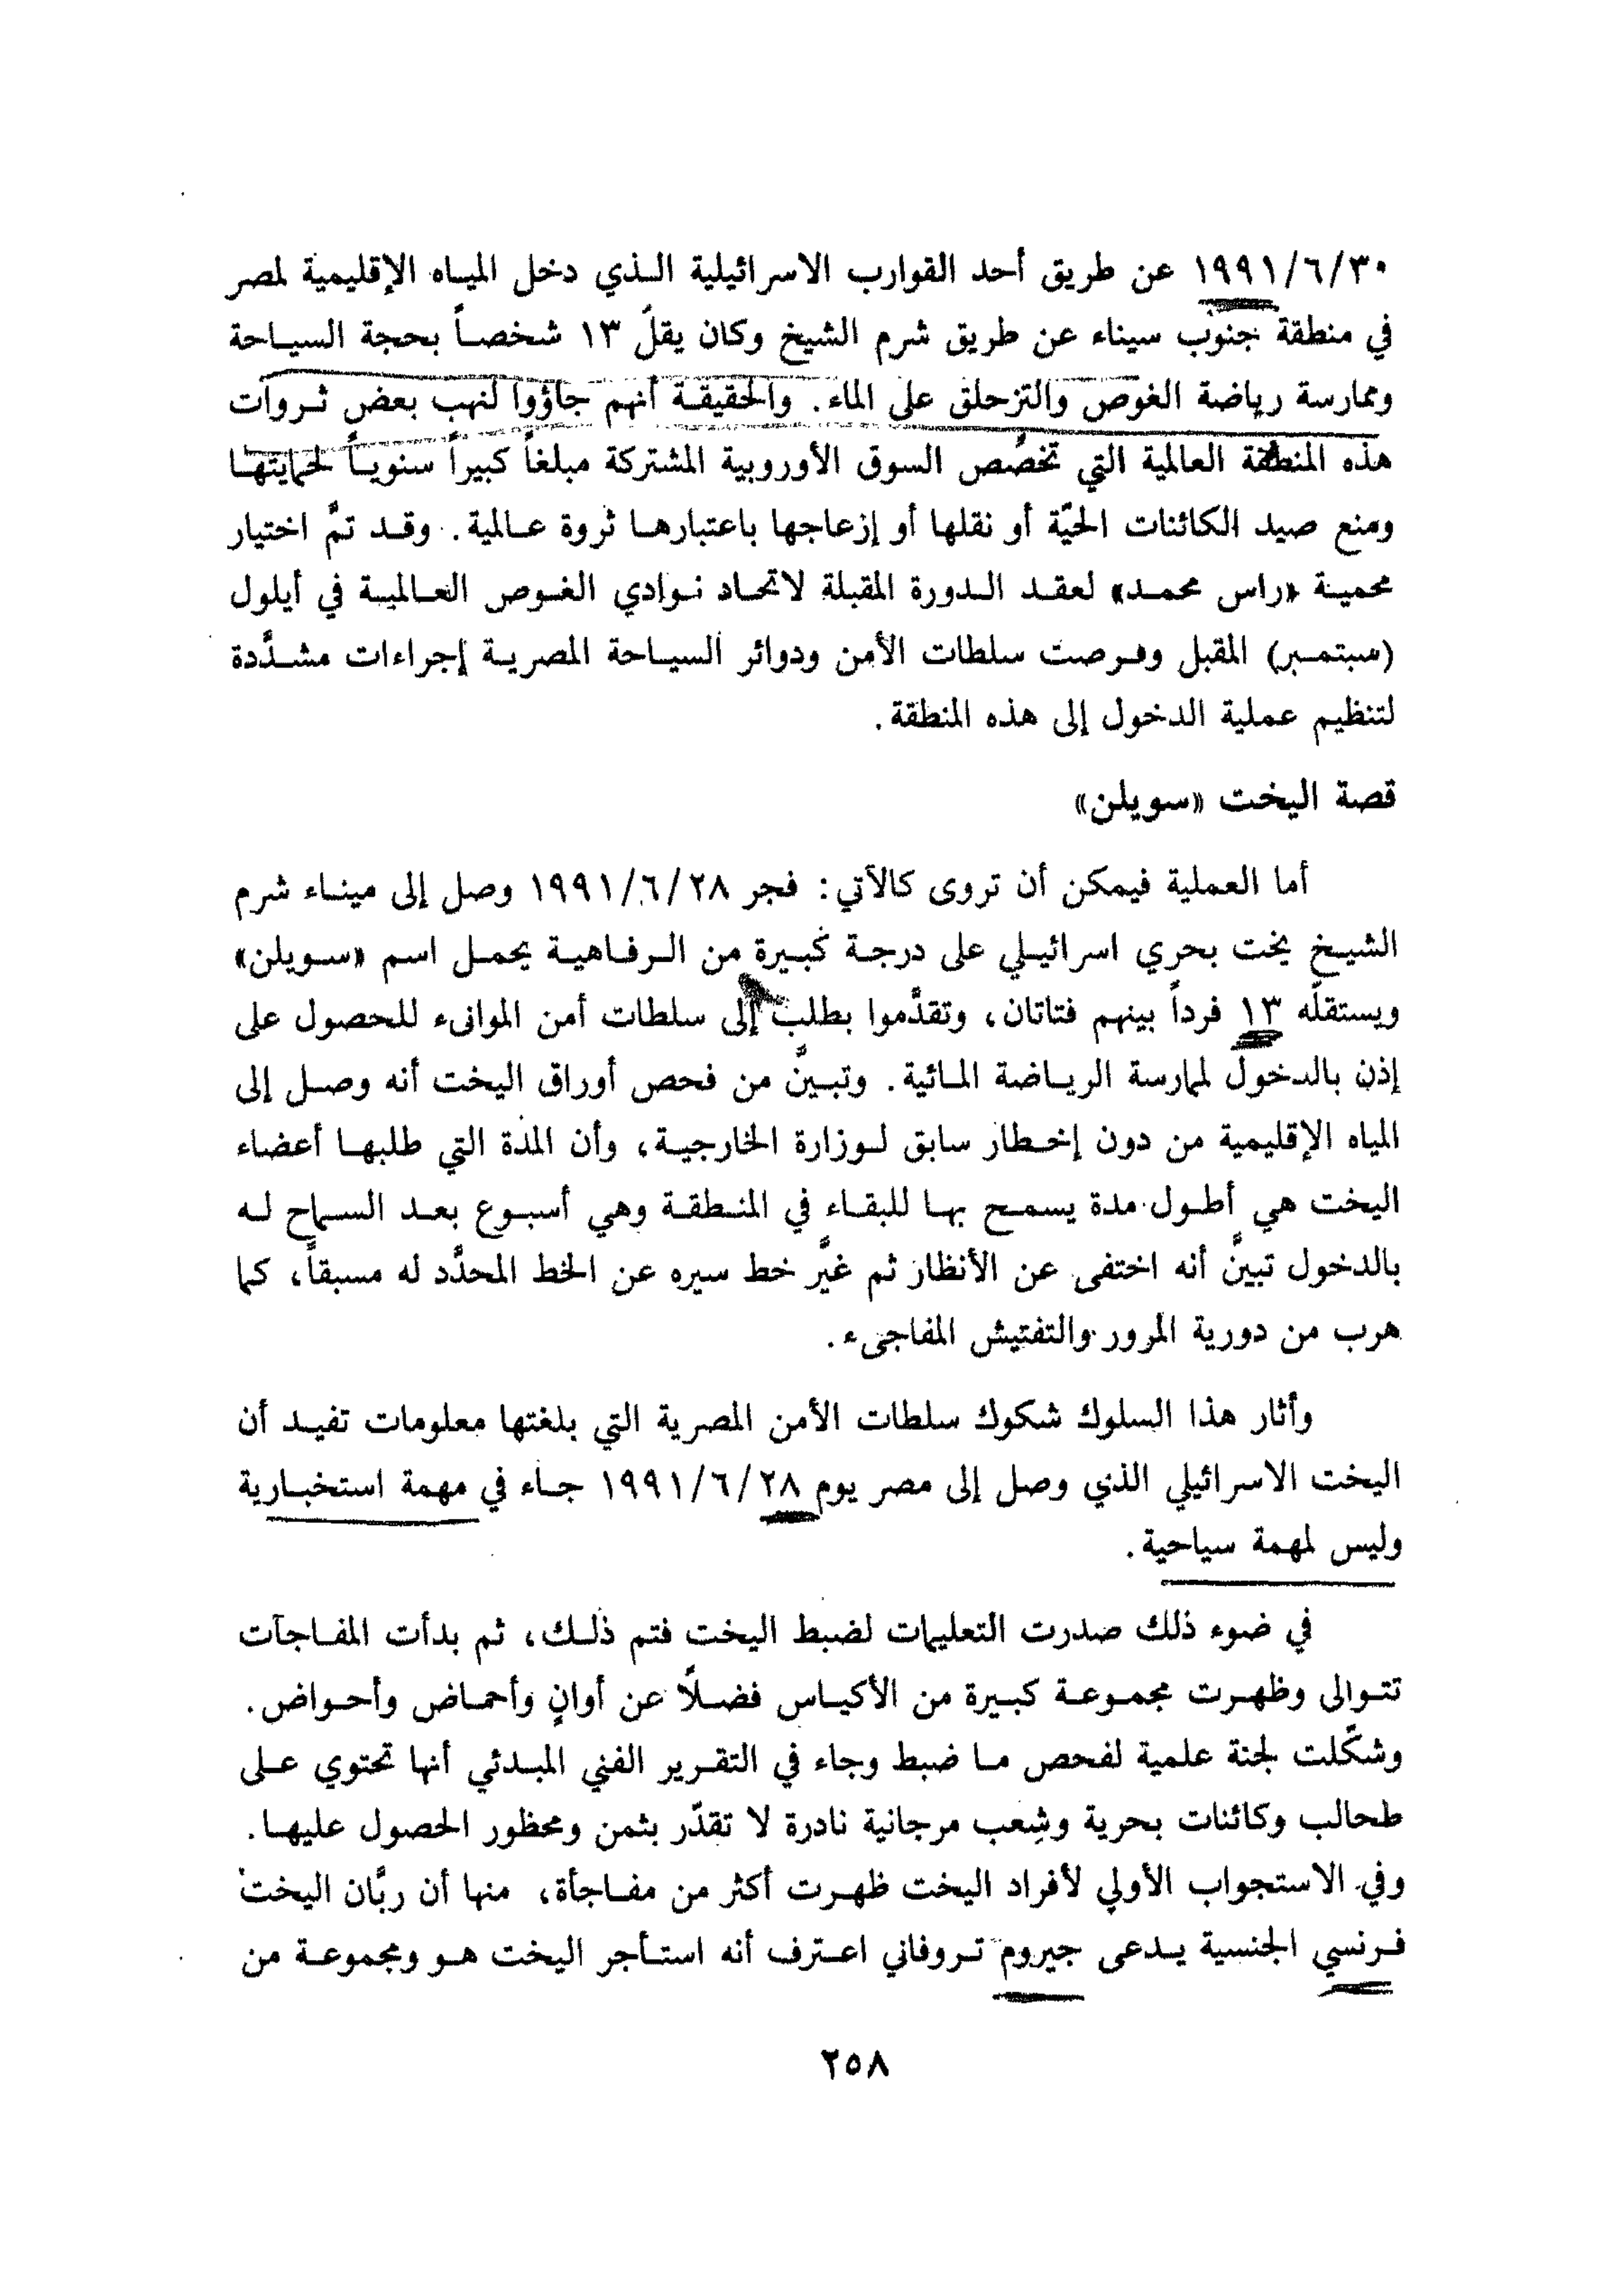 ١٩٩١/٦/٣٠ عن طريق أحد القوارب الاسرائيلية الـذي دخل الميـاه الإقليمية لمصر
في منطقة جنوب سيناء عن طريق شرم الشيخ وكان يقلّ ١٣ شخصـاً بحجة السيـاحة
وممارسة رياضة الغوص والتزحلق على الماء. والحقيقـة أنهم جاؤوا لنهب بعض ثـروات
هذه المنطقة العالمية التي تخصّص السوق الأوروبية المشتركة مبلغاً كبيراً سنويـاً لحمايتهـا
ومنع صيد الكائنات الحيّة أو نقلها أو إزعاجها باعتبارهـا ثروة عـالمية. وقـد تمّ اختيار
محميـة «راس محمـد» لعقـد الـدورة المقبلة لاتحـاد نـوادي الغـوص العـالميـة في أيلول
(سبتمـبر) المقبل وفـرضت سلطات الأمن ودوائر السيـاحة المصريـة إجراءات مشـدَّدة
لتنظيم عملية الدخول إلى هذه المنطقة.
قصة اليخت «سويلن»
أما العملية فيمكن أن تروى كالآتي: فجر ١٩٩١/٦/٢٨ وصل إلى مينـاء شرم
الشيـخ يخت بحري اسرائيـلي على درجـة كبـيرة من الـرفـاهيـة يحمـل اسم «سـويلن»
ويستقلّه ١٣ فرداً بينهم فتاتان، وتقدَّموا بطلب إلى سلطات أمن الموانىء للحصول على
إذن بالدخول لممارسة الريـاضة المـائية. وتبـينَّ من فحص أوراق اليخت أنه وصـل إلى
المياه الإقليمية من دون إخـطار سابق لـوزارة الخارجيـة، وأن المدة التي طلبهـا أعضاء
اليخت هي أطـول مدة يسمـح بهـا للبقـاء في المنـطقـة وهي أسبـوع بعـد السـماح لـه
بالدخول تبينَّ أنه اختفى عن الأنظار ثم غيَّر خط سيره عن الخط المحدَّد له مسبقاً، كما
هرب من دورية المرور والتفتيش المفاجىء.
وأثار هذا السلوك شكوك سلطات الأمن المصرية التي بلغتها معلومات تفيـد أن
اليخت الاسرائيلي الذي وصل إلى مصر يوم ١٩٩١/٦/٢٨ جـاء في مهمة استخبـارية
وليس لمهمة سياحية.
في ضوء ذلك صدرت التعليمات لضبط اليخت فتم ذلـك، ثم بدأت المفـاجآت
تتـوالى وظهـرت مجمـوعـة كبيرة من الأكيـاس فضـلاً عن أوانٍ وأحمـاض وأحـواض.
وشكّلت لجنة علمية لفحص مـا ضبط وجاء في التقـرير الفني المبـدئي أنها تحتوي عـلى
طحالب وكائنات بحرية وشِعب مرجانية نادرة لا تقدّر بثمن ومحظور الحصول عليهـا.
وفي الاستجواب الأولي لأفراد اليخت ظهـرت أكثر من مفـاجأة، منها أن ربَّان اليخت
فـرنسي الجنسية يـدعى جيروم تـروفاني اعـترف أنه استـأجر اليخت هـو ومجموعـة من
٢٥٨